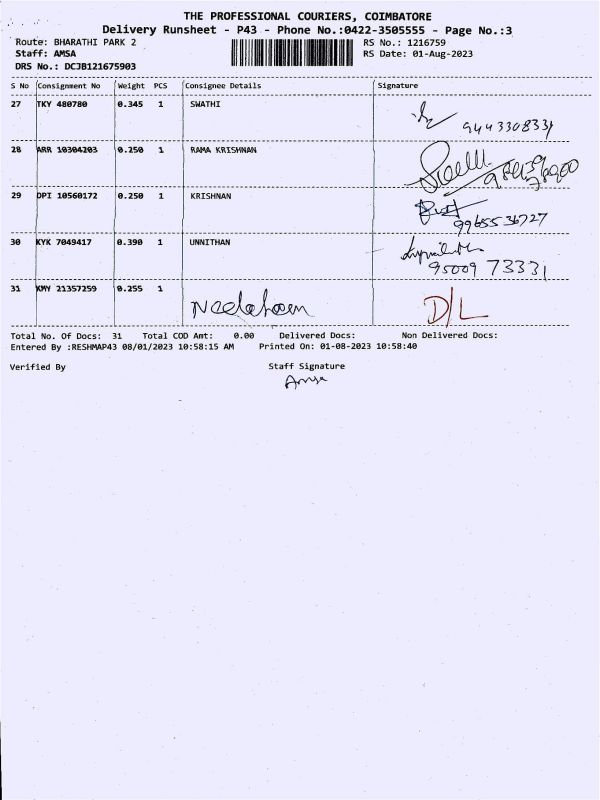 THE PROFESSIONAL COURIERS, COIMBATORE
Delivery Runsheet - P43 - Phone No.:0422-3505555 - Page No.:3
Route: BHARATHI PARK 2 RS No.: 1216759
Staff: AMSA RS Date: 01-Aug-2023
DRS No.: DCJB121675903
S No Consignment No Weight PCS Consignee Details Signature
27 TKY 480780 0.345 1 SWATHI
9443308331
28 ARR 10304203 0.250 1 RAMA KRISHNAN
29 DPI 10560172 0.250 1 KRISHNAN
9965536727
30 KYK 7049417 0.390 1 UNNITHAN
95009 73331
31 KMY 21357259 0.255 1
D/L
Total No. Of Docs: 31 Total COD Amt: 0.00 Delivered Docs: Non Delivered Docs:
Entered By :RESHMAP43 08/01/2023 10:58:15 AM Printed On: 01-08-2023 10:58:40
Verified By Staff Signature
Amsa